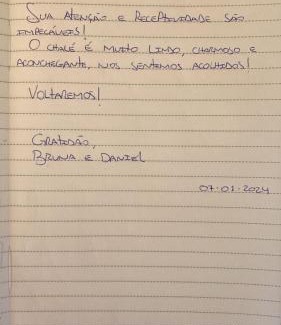 SUA ATENÇÃO E RECEPTIVIDADE SÃO
IMPECÁVEIS!
O CHALÉ É MUITO LINDO, CHARMOSO E
ACONCHEGANTE, NOS SENTIMOS ACOLHIDOS!
VOLTAREMOS!
GRATIDÃO,
BRUNA E DANIEL
07.01.2024